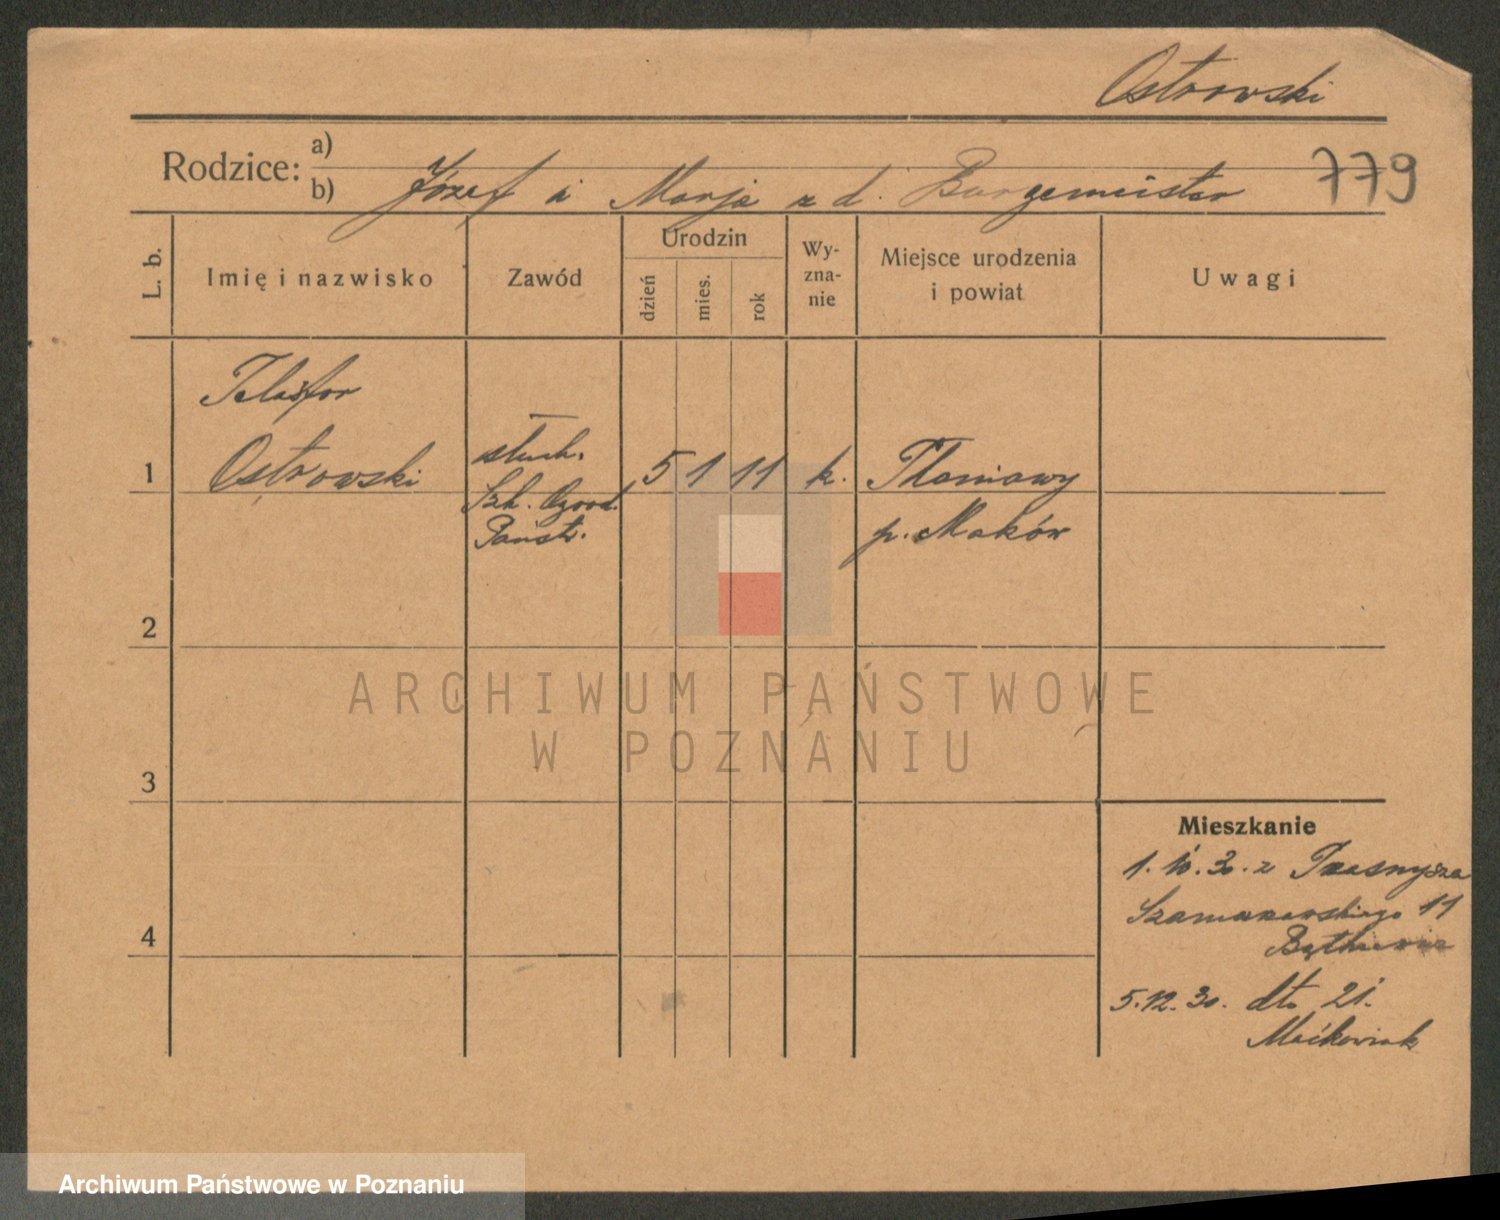 Ostrowski
Rodzice: a)
b) Józef i Marja z d. Burgemeister 779
L. b.
Imię i nazwisko
Zawód
Urodzin
dzień
mies.
rok
Wy-
zna-
nie
Miejsce urodzenia
i powiat
Uwagi
Telesfor
1 Ostrowski słuch. 5 1 11 k. Płoniawy
Szk. Ogrod. p. Maków
Państw.
2
3
4
Mieszkanie
1. 10. 30. z Przasnysza
Szamarzewskiego 11
5.12.30. dto 21.
Maćkowiak
ARCHIWUM PAŃSTWOWE
W POZNANIU
Archiwum Państwowe w Poznaniu